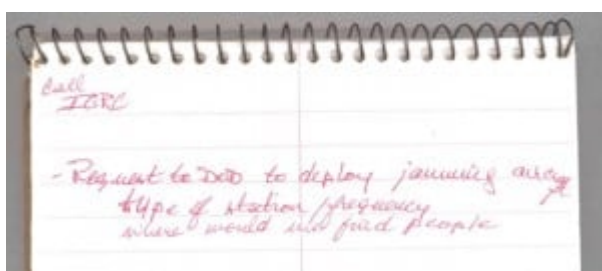 Call
ICRC
- Request to DoD to deploy jamming
type of station / frequency
where would we find people